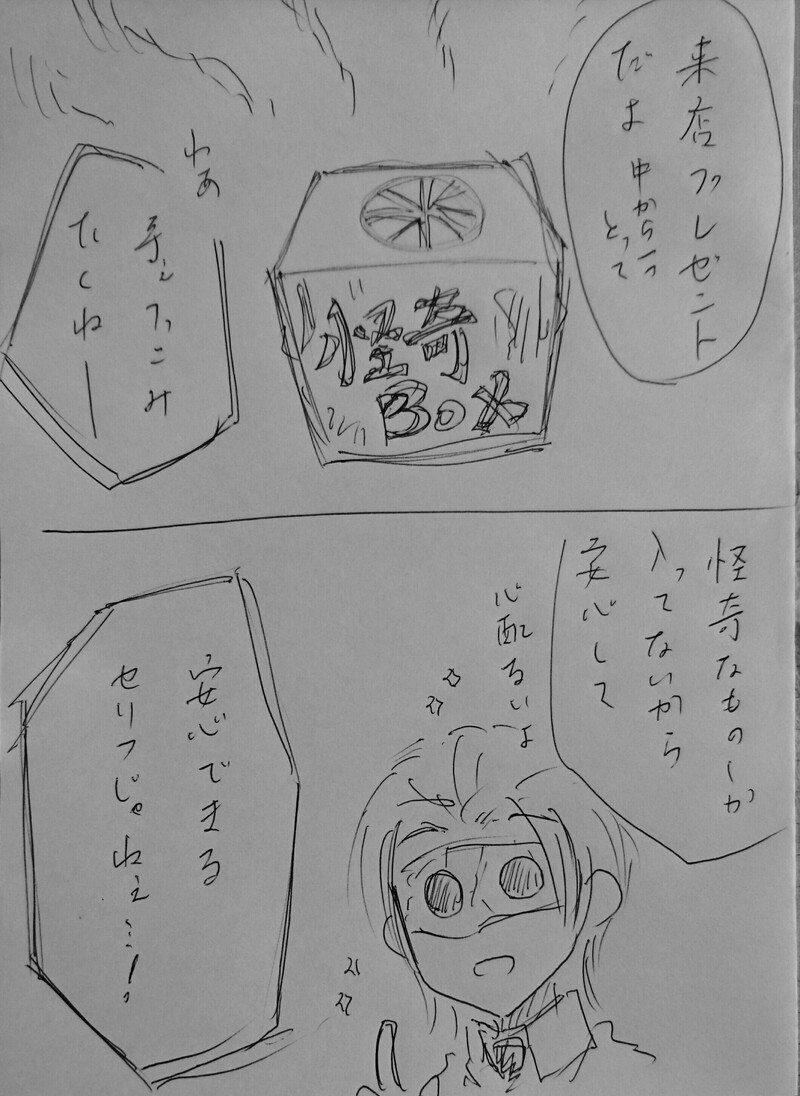 来店プレゼント
だよ 中から一つ
とって
怪奇
BOX
わあ
手ェつっこみ
たくねー
怪奇なものしか
入ってないから
安心して
心配るいよ
安心できる
セリフじゃねェ…!